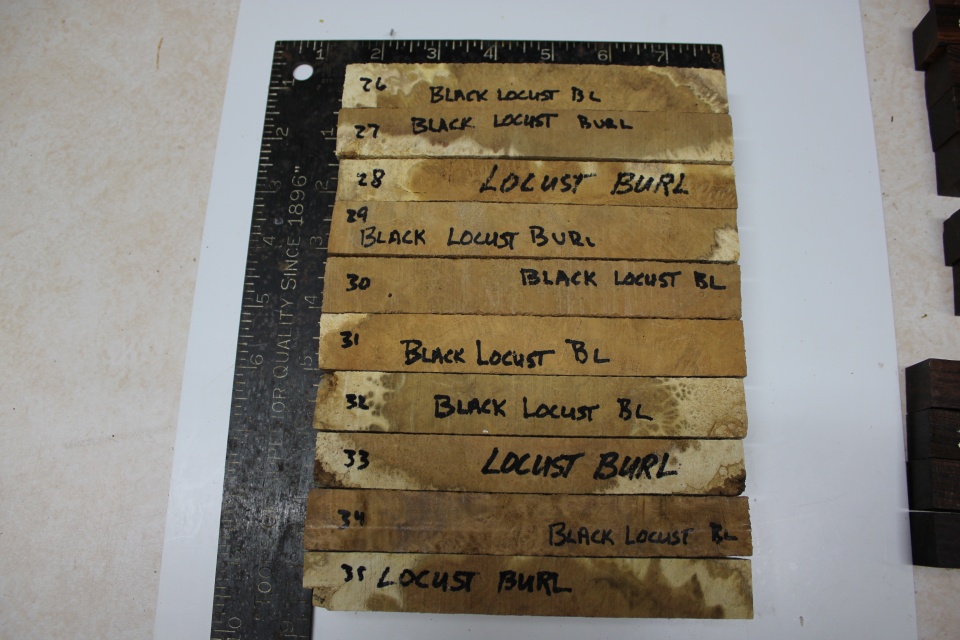 1 2 3 4 5 6 7 8
26 BLACK LOCUST BL
27 BLACK LOCUST BURL
28 LOCUST BURL
29 BLACK LOCUST BURL
30 BLACK LOCUST BL
31 BLACK LOCUST BL
32 BLACK LOCUST BL
33 LOCUST BURL
34 BLACK LOCUST BL
35 LOCUST BURL
1 2 3 4 5
2 3 4 5 6
FOR QUALITY SINCE 1896"